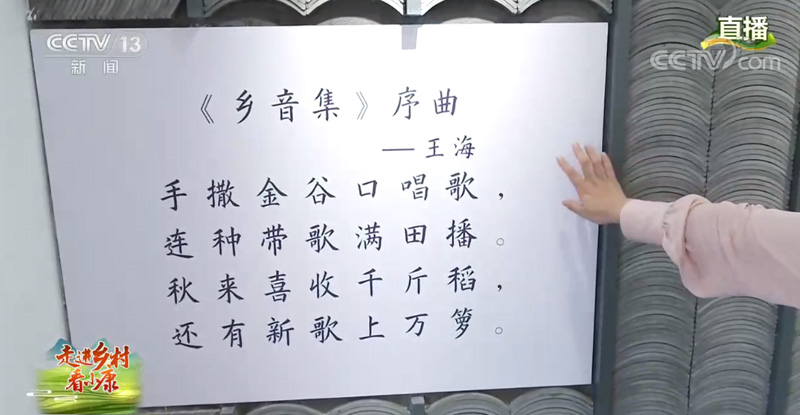 CCTV 13
新闻
直播
CCTV com
《乡音集》序曲
——王海
手撒金谷口唱歌，
连种带歌满田播。
秋来喜收千斤稻，
还有新歌上万箩。
走进乡村
看小康